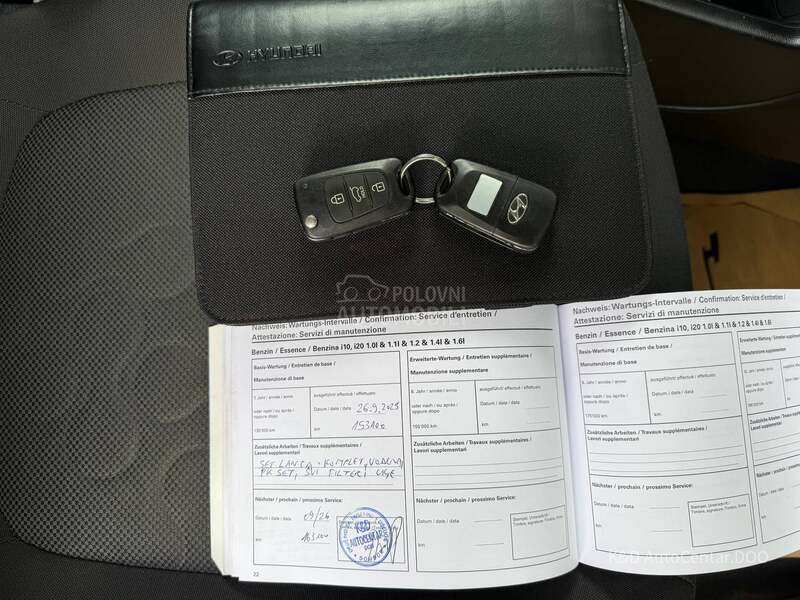 HYUNDAI
POLOVNI
AUTOMOBILI
Nachweis: Wartungs-Intervalle / Confirmation: Service d'entretien /
Attestazione: Servizi di manutenzione
Benzin / Essence / Benzina i10, i20 1.0l & 1.1l & 1.2 & 1.4l & 1.6l
Basis-Wartung / Entretien de base /
Manutenzione di base
7. Jahr / année / anno
ausgeführt effectué / effettuato:
oder nach / ou après /
oppure dopo
Datum / date / data
26.9.2025
km
153100
Zusätzliche Arbeiten / Travaux supplémentaires /
Lavori supplementari
SET LANCA - KOMPLET, VODENA
PK SET, SVI FILTERI
Nächster / prochain / prossimo Service:
Datum / date / data
09/26
km
K&D
AUTOCENTAR
DOO
22
Erweiterte-Wartung / Entretien supplémentaire /
Manutenzione supplementare
8. Jahr / année / anno
ausgeführt effectué / effettuato:
oder nach / ou après /
oppure dopo
Datum / date / data
150'000 km
km
Zusätzliche Arbeiten / Travaux supplémentaires /
Lavori supplementari
Nächster / prochain / prossimo Service:
Datum / date / data
km
Stempel, Unterschrift /
Timbre, signature /Timbro, firma
Nachweis: Wartungs-Intervalle / Confirmation: Service d'entretien /
Attestazione: Servizi di manutenzione
Benzin / Essence / Benzina i10, i20 1.0l & 1.1l & 1.2 & 1.4l & 1.6l
Basis-Wartung / Entretien de base /
Manutenzione di base
ausgeführt effectué / effettuato:
oder nach / ou après /
oppure dopo
Datum / date / data
175'000 km
km
Zusätzliche Arbeiten / Travaux supplémentaires /
Lavori supplementari
Nächster / prochain / prossimo Service:
Datum / date / data
km
Stempel, Unterschrift /
Timbre, signature /Timbro, firma
K&D AutoCentar DOO